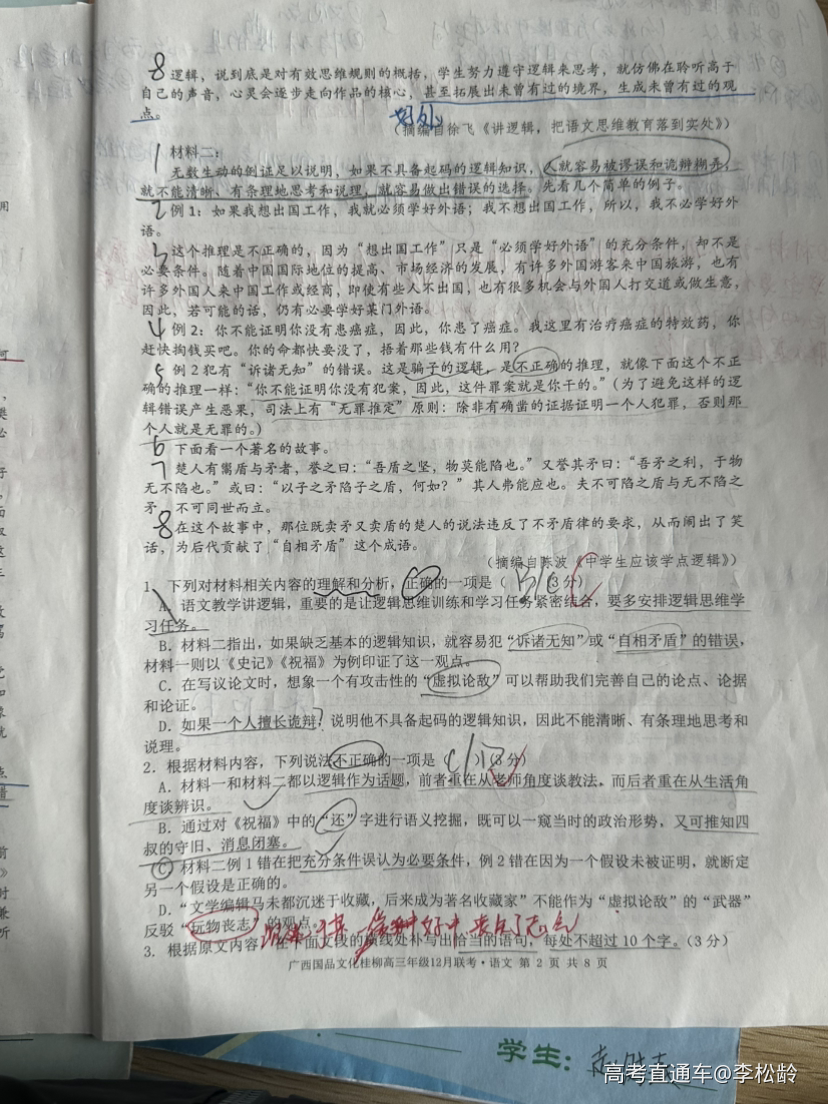 8 逻辑，说到底是对有效思维规则的概括，学生努力遵守逻辑来思考，就仿佛在聆听高于
自己的声音，心灵会逐步走向作品的核心，甚至拓展出未曾有过的境界，生成未曾有过的观
点。
好处
（摘编自徐飞《讲逻辑，把语文思维教育落到实处》）
1 材料二：
无数生动的例证足以说明，如果不具备起码的逻辑知识，人就容易被谬误和诡辩糊弄，
就不能清晰、有条理地思考和说理，就容易做出错误的选择。先看几个简单的例子。
2 例1：如果我想出国工作，我就必须学好外语；我不想出国工作，所以，我不必学好外
语。
3 这个推理是不正确的，因为“想出国工作”只是“必须学好外语”的充分条件，却不是
必要条件。随着中国国际地位的提高、市场经济的发展，有许多外国游客来中国旅游，也有
许多外国人来中国工作或经商，即使有些人不出国，也有很多机会与外国人打交道或做生意，
因此，若可能的话，仍有必要学好某门外语。
4 例2：你不能证明你没有患癌症，因此，你患了癌症。我这里有治疗癌症的特效药，你
赶快掏钱买吧。你的命都快要没了，捂着那些钱有什么用？
5 例2犯有“诉诸无知”的错误。这是骗子的逻辑，是不正确的推理，就像下面这个不正
确的推理一样：“你不能证明你没有犯案，因此，这件罪案就是你干的。”（为了避免这样的逻
辑错误产生恶果，司法上有“无罪推定”原则：除非有确凿的证据证明一个人犯罪，否则那
个人就是无罪的。）
6 下面看一个著名的故事。
7 楚人有鬻盾与矛者，誉之曰：“吾盾之坚，物莫能陷也。”又誉其矛曰：“吾矛之利，于物
无不陷也。”或曰：“以子之矛陷子之盾，何如？”其人弗能应也。夫不可陷之盾与无不陷之
矛，不可同世而立。
8 在这个故事中，那位既卖矛又卖盾的楚人的说法违反了不矛盾律的要求，从而闹出了笑
话，为后代贡献了“自相矛盾”这个成语。
（摘编自陈波《中学生应该学点逻辑》）
1. 下列对材料相关内容的理解和分析，正确的一项是（ B/C ）（3分）
A. 语文教学讲逻辑，重要的是让逻辑思维训练和学习任务紧密结合，要多安排逻辑思维学
习任务。
B. 材料二指出，如果缺乏基本的逻辑知识，就容易犯“诉诸无知”或“自相矛盾”的错误，
材料一则以《史记》《祝福》为例印证了这一观点。
C. 在写议论文时，想象一个有攻击性的“虚拟论敌”可以帮助我们完善自己的论点、论据
和论证。
D. 如果一个人擅长诡辩，说明他不具备起码的逻辑知识，因此不能清晰、有条理地思考和
说理。
2. 根据材料内容，下列说法不正确的一项是（ C/B ）（3分）
A. 材料一和材料二都以逻辑作为话题，前者重在从老师角度谈教法，而后者重在从生活角
度谈辨识。
B. 通过对《祝福》中的“还”字进行语义挖掘，既可以一窥当时的政治形势，又可推知四
叔的守旧、消息闭塞。
C 材料二例1错在把充分条件误认为必要条件，例2错在因为一个假设未被证明，就断定
另一个假设是正确的。
D. “文学编辑马未都沉迷于收藏，后来成为著名收藏家”不能作为“虚拟论敌”的“武器”
反驳“玩物丧志”的观点。
3. 根据原文内容，在下面文段的横线处补写出恰当的语句，每处不超过10个字。（3分）
广西国品文化桂柳高三年级12月联考·语文 第 2 页 共 8 页
学生：
高考直通车@李松龄